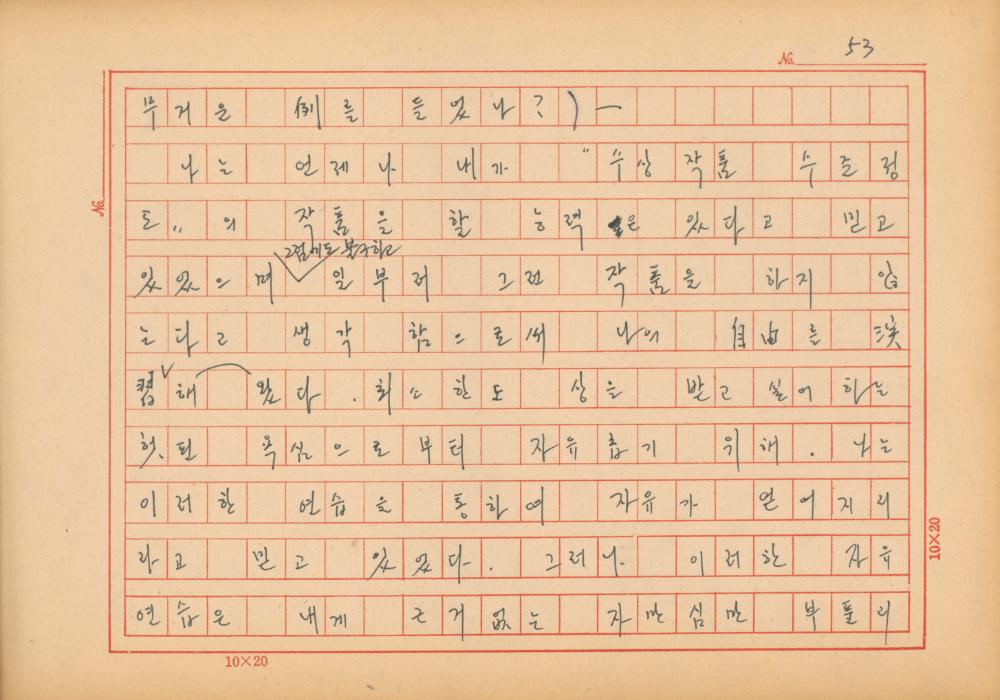 No. 53
무거운 例를 들었나?) —
나는 언제나 내가 "수상 작품 수준정
도" 의 작품을 할 능력은 있다고 믿고
그럼에도 불구하고
있었으며 일부러 그런 작품을 하지 않
는다고 생각 함으로써 나의 自由를 演
習해 왔다. 최소한도 상을 받고 싶어 하는
헛된 욕심으로부터 자유롭기 위해. 나는
이러한 연습을 통하여 자유가 얻어지리
라고 믿고 있었다. 그러나 이러한 자유
연습은 내게 근거 없는 자만심만 부풀리
No.
10×20
10×20